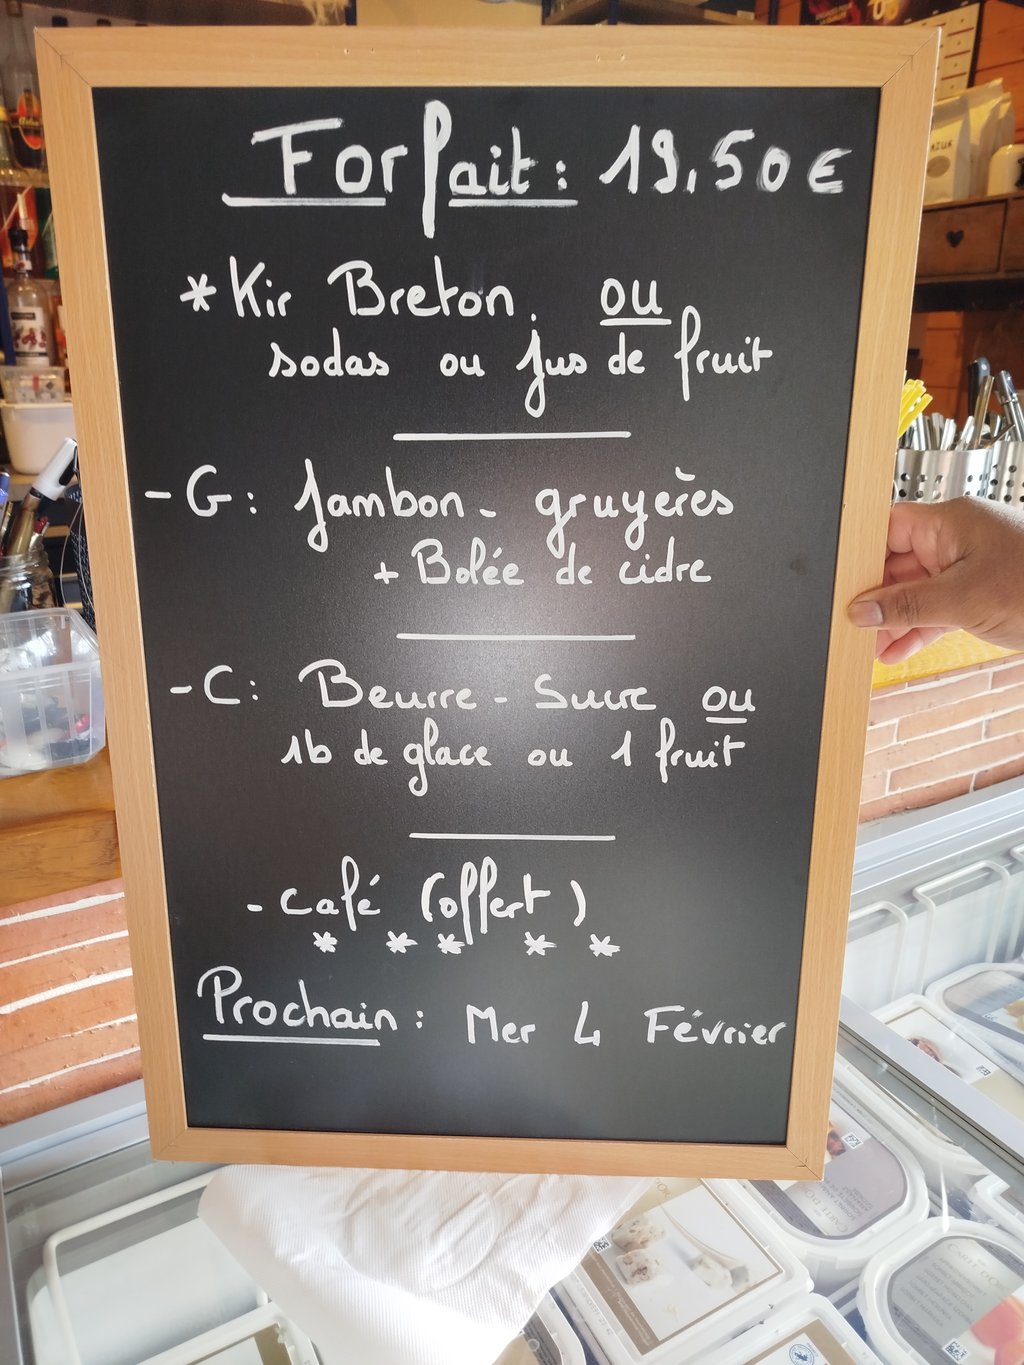 Forfait : 19,50 €
* Kir Breton. ou
sodas ou jus de fruit
- G : Jambon - gruyères
+ Bolée de cidre
- C : Beurre - Sucre ou
1b de glace ou 1 fruit
- café (offert)
* * * * *
Prochain : Mer 4 Février